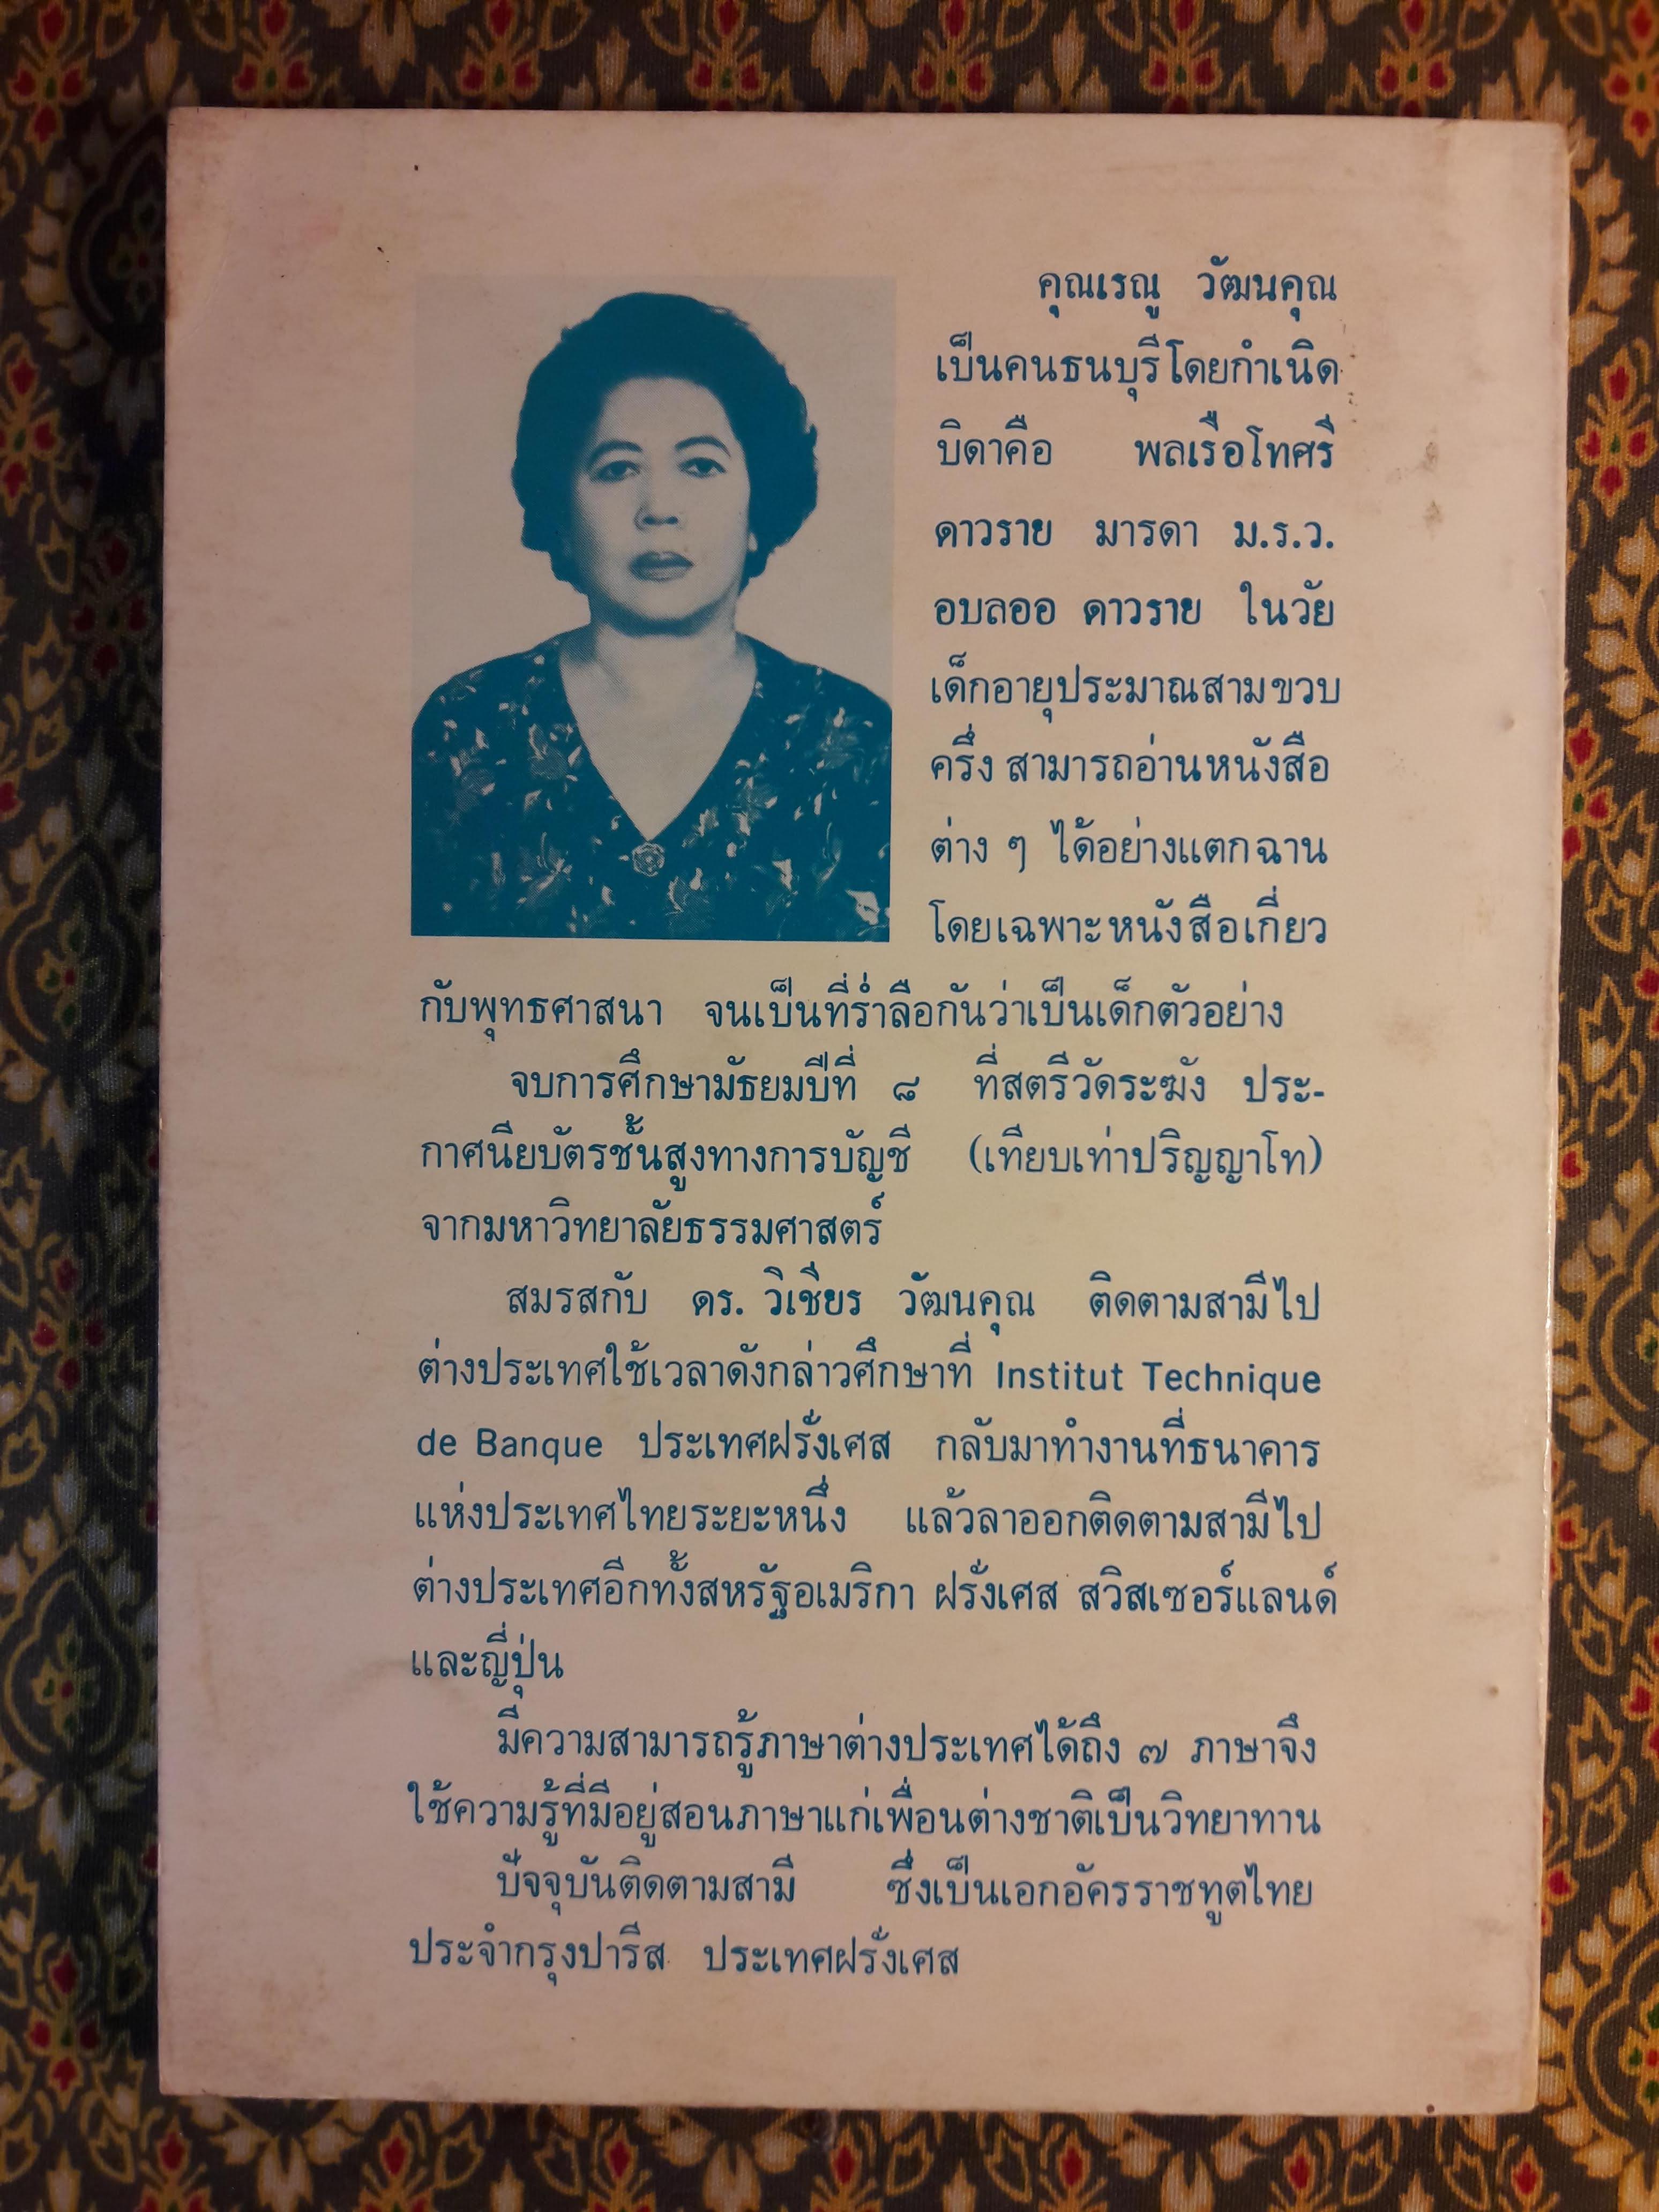 คุณเรณู วัฒนคุณ
เป็นคนธนบุรีโดยกำเนิด
บิดาคือ พลเรือโทศรี
ดาวราย มารดา ม.ร.ว.
อบลออ ดาวราย ในวัย
เด็กอายุประมาณสามขวบ
ครึ่ง สามารถอ่านหนังสือ
ต่าง ๆ ได้อย่างแตกฉาน
โดยเฉพาะหนังสือเกี่ยว
กับพุทธศาสนา จนเป็นที่ร่ำลือกันว่าเป็นเด็กตัวอย่าง
จบการศึกษามัธยมปีที่ ๘ ที่สตรีวัดระฆัง ประ-
กาศนียบัตรชั้นสูงทางการบัญชี (เทียบเท่าปริญญาโท)
จากมหาวิทยาลัยธรรมศาสตร์
สมรสกับ ดร. วิเชียร วัฒนคุณ ติดตามสามีไป
ต่างประเทศใช้เวลาดังกล่าวศึกษาที่ Institut Technique
de Banque ประเทศฝรั่งเศส กลับมาทำงานที่ธนาคาร
แห่งประเทศไทยระยะหนึ่ง แล้วลาออกติดตามสามีไป
ต่างประเทศอีกทั้งสหรัฐอเมริกา ฝรั่งเศส สวิสเซอร์แลนด์
และญี่ปุ่น
มีความสามารถรู้ภาษาต่างประเทศได้ถึง ๗ ภาษาจึง
ใช้ความรู้ที่มีอยู่สอนภาษาแก่เพื่อนต่างชาติเป็นวิทยาทาน
ปัจจุบันติดตามสามี ซึ่งเป็นเอกอัครราชทูตไทย
ประจำกรุงปารีส ประเทศฝรั่งเศส